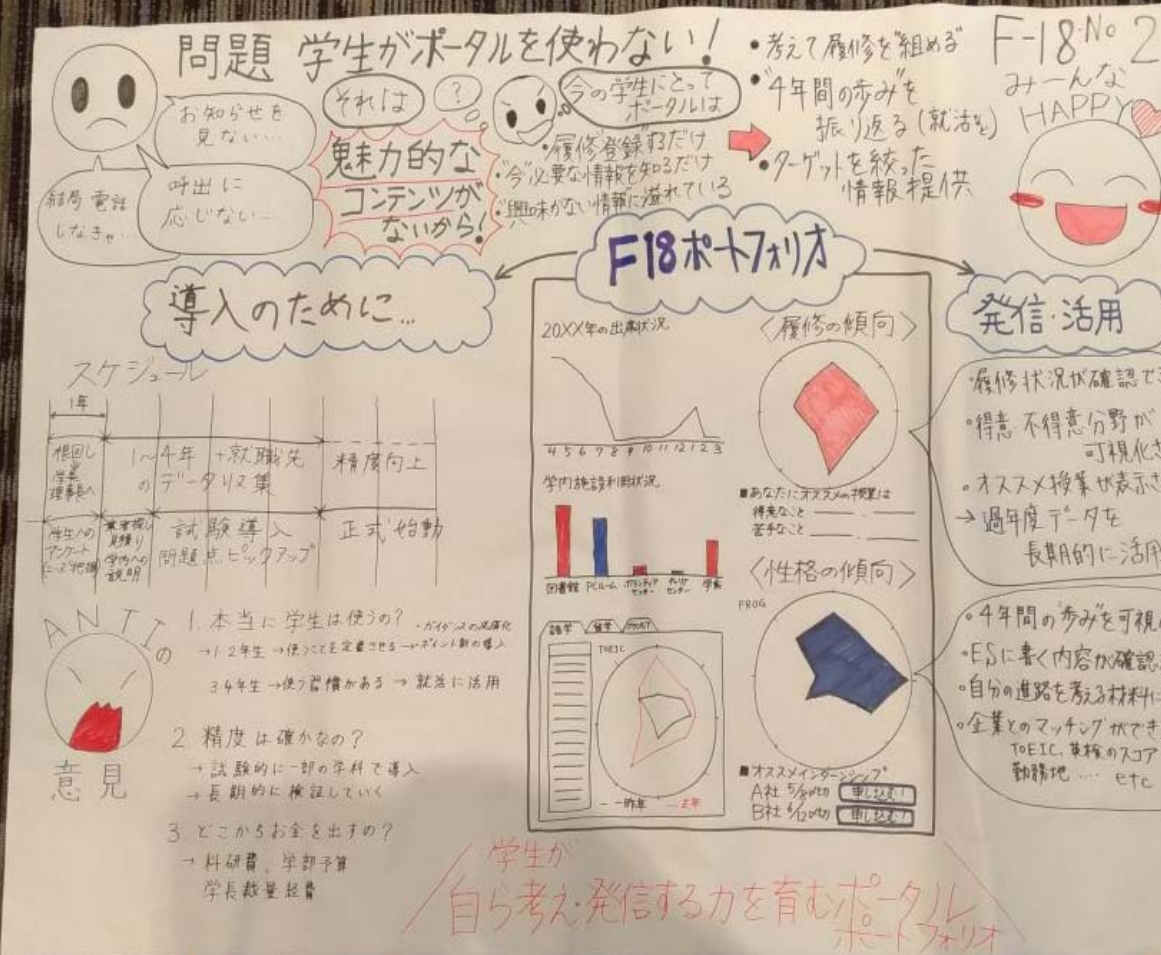 問題 学生がポータルを使わない!
お知らせを
見ない…
呼出に
応じない…
結局 電話
しなきゃ…
それは
?
魅力的な
コンテンツが
ないから!
今の学生にとって
ポータルは
・履修登録するだけ
・今必要な情報を知るだけ
・興味がない情報に溢れている
・考えて履修を"組める"
・"4年間の歩み"を
振り返る(就活など)
・ターゲットを絞った
情報提供
F-18 No 2
みーんな
HAPPY
導入のために…
スケジュール
1年
根回し
学長
理事長へ
1〜4年 +就職先
のデータ収集
精度向上
学生への
アンケート
ニーズ把握
業者探し
見積り
学内への
説明
試験導入
問題点ピックアップ
正式始動
ANTIの
意見
1. 本当に学生は使うの?
・ガイダンスの
→1・2年生→使うことを定着させる→ポイント制の導入
3・4年生→使う習慣がある→就活に活用
2 精度は確かなの?
→試験的に一部の学科で導入
→長期的に検証していく
3. どこからお金を出すの?
→科研費、学部予算
学長裁量経費
F18ポートフォリオ
20XX年の出席状況
4 5 6 7 8 9 10 11 12 1 2 3
学内施設利用状況
図書館 PCルーム ボランティアセンター キャリアセンター 学食
語学 留学 ボランティア
TOEIC
一昨年 去年
<履修の傾向>
■あなたにオススメの授業は
得意なこと
苦手なこと
<性格の傾向>
PROG
■オススメインターンシップ
A社 5/30〆切 申し込む!
B社 6/12〆切 申し込む!
発信・活用
・履修状況が確認でき
・得意・不得意分野が
可視化さ
・オススメ授業が表示さ
→過年度データを
長期的に活用
・4年間の"歩み"を可視
・ESに書く内容が確認
・自分の進路を考える材料に
・企業とのマッチングができ
TOEIC、英検のスコア
勤務地… etc
学生が
自ら考え・発信する力を育むポータル
ポートフォリオ